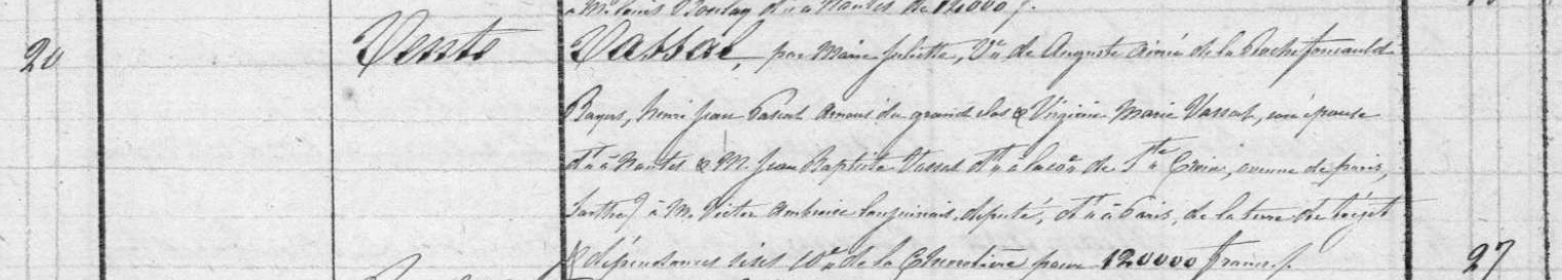 à Mr Louis dt à Nantes de 12,000 f.
20 Vente Vassal, par Marie Juliette, Ve de Auguste Aimée de la Rochefoucauld
Bayers, henri Jean Pascal Arnous du grand clos & Virginie Marie Vassal, son épouse
dt à Nantes & M. Jean Baptiste Vassal dt à la cne de Ste Croix, avenue de paris,
Sarthe) à M. Victor Ambroise Lanjuinais, député, dt à Paris, de la terre de
& dépendances sises cne de la Chevrolière pour 120000 francs /. 97